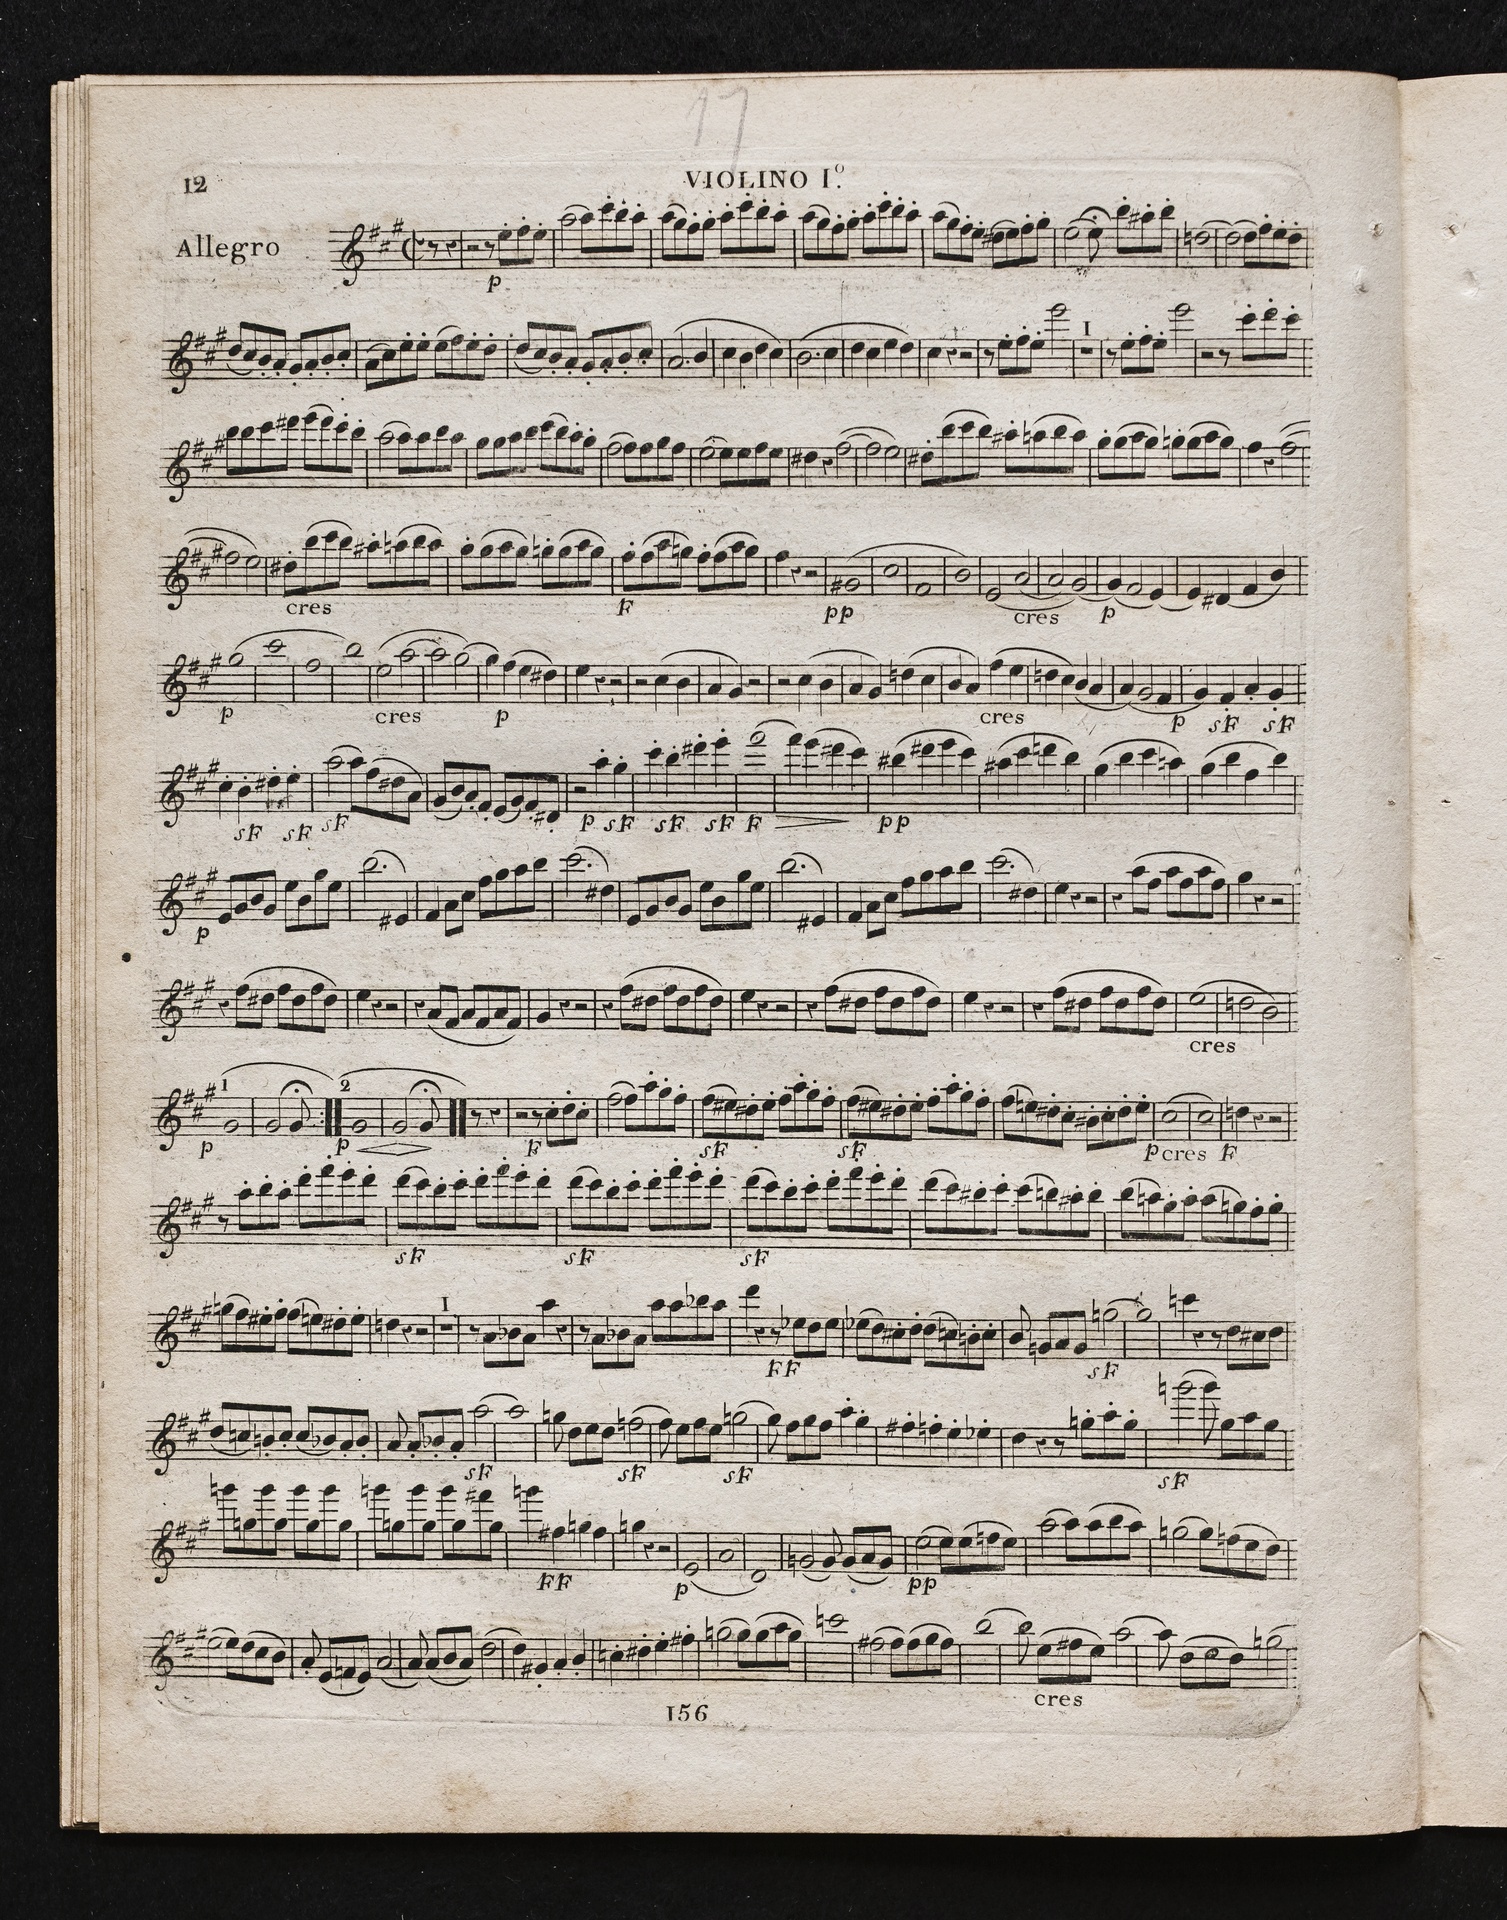 17
12
VIOLINO I.º
Allegro
p
I
cres F pp cres p
p cres p cres p sF sF
sF sF sF p sF sF sF F pp
p
cres
1 2
p p F sF sF p cres F
sF sF sF
I
FF sF
sF sF sF sF
FF p pp
cres
156